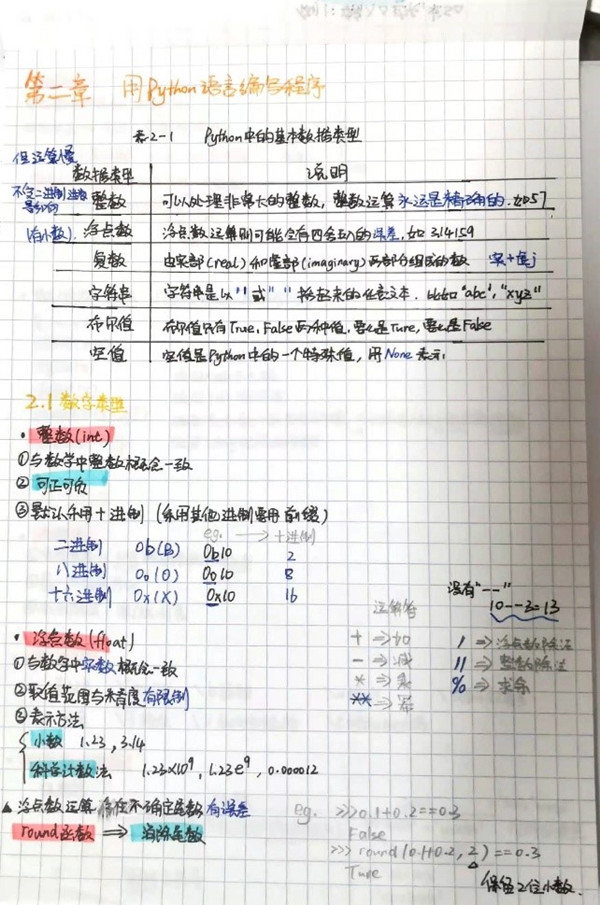 第二章 用Python语言编写程序
表2-1 Python中的基本数据类型
但运算慢
数据类型 说明
不含二进制进数
整数 可以处理非常大的整数，整数运算永远是精确的.如057
(有小数). 浮点数 浮点数运算则可能会有四舍五入的误差.如3.14159
复数 由实部(real)和虚部(imaginary)两部分组成的数 实+虚j
字符串 字符串是以''或" "括起来的任意文本.比如'abc', "xyz"
布尔值 布尔值只有True, False两种值.要么是Ture,要么是False
空值 空值是Python中的一个特殊值，用None表示.
2.1 数字类型
· 整数(int)
①与数学中整数概念一致
② 可正可负
③默认采用十进制 (采用其他进制需用前缀)
eg. → 十进制
二进制 0b(B) 0b10 2
八进制 0o(O) 0o10 8
十六进制 0x(X) 0x10 16
没有"--"
10--3=13
运算符
+ ⇒加 / ⇒浮点数除法
- ⇒减 // ⇒整数除法
* ⇒乘 % ⇒求余
** ⇒幂
· 浮点数(float)
①与数学中实数概念一致
②取值范围与精度有限制
③表示方法
小数 1.23, 3.14
科学计数法 1.23×10⁹, 1.23e⁹, 0.000012
▲ 浮点数运算存在不确定尾数 有误差
round函数 ⇒ 消除尾数
eg. >>>0.1+0.2==0.3
False
>>> round(0.1+0.2, 2)==0.3
Ture
保留2位小数.